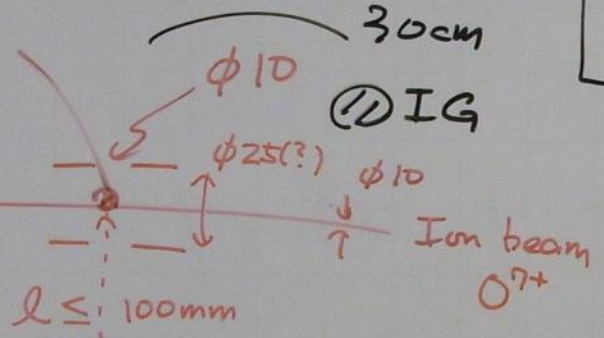 30cm
φ10
IG
φ25(?)
φ10
Ion beam
O7+
l ≤ 100mm